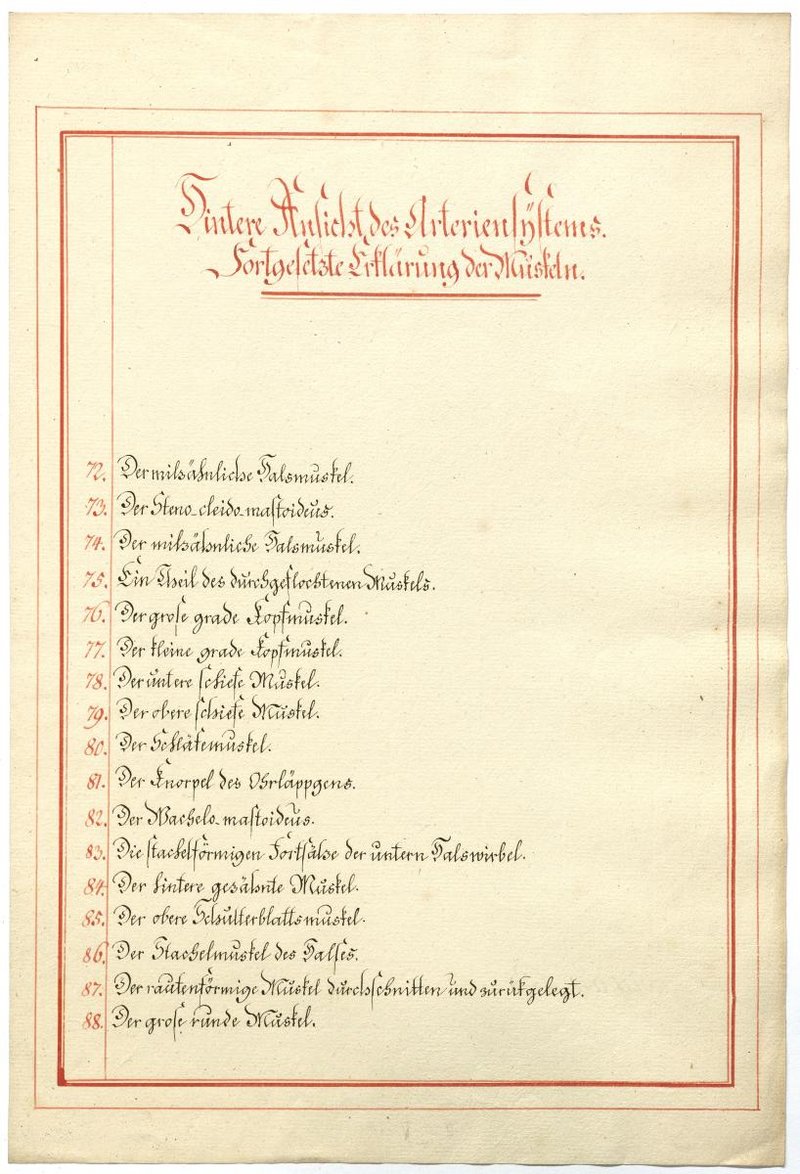 Hintere Ansicht des Arteriensÿstems.
Fortgesetzte Erklärung der Muskeln.
72. Der milzähnliche Halsmuskel.
73. Der Steno-cleido-mastoideus.
74. Der milzähnliche Halsmuskel.
75. Ein Theil des durchgeflochtenen Muskels.
76. Der grose grade Kopfmuskel.
77. Der kleine grade Kopfmuskel.
78. Der untere schiefe Muskel.
79. Der obere schiefe Muskel.
80. Der Schläfemuskel.
81. Der Knorpel des Ohrläppgens.
82. Der Trachelo-mastoideus.
83. Die stachelförmigen Fortsätze der untern Halswirbel.
84. Der hintere gezähnte Muskel.
85. Der obere Schulterblattsmuskel.
86. Der Stachelmuskel des Halses.
87. Der rautenförmige Muskel durchschnitten und zurükgelegt.
88. Der grose runde Muskel.